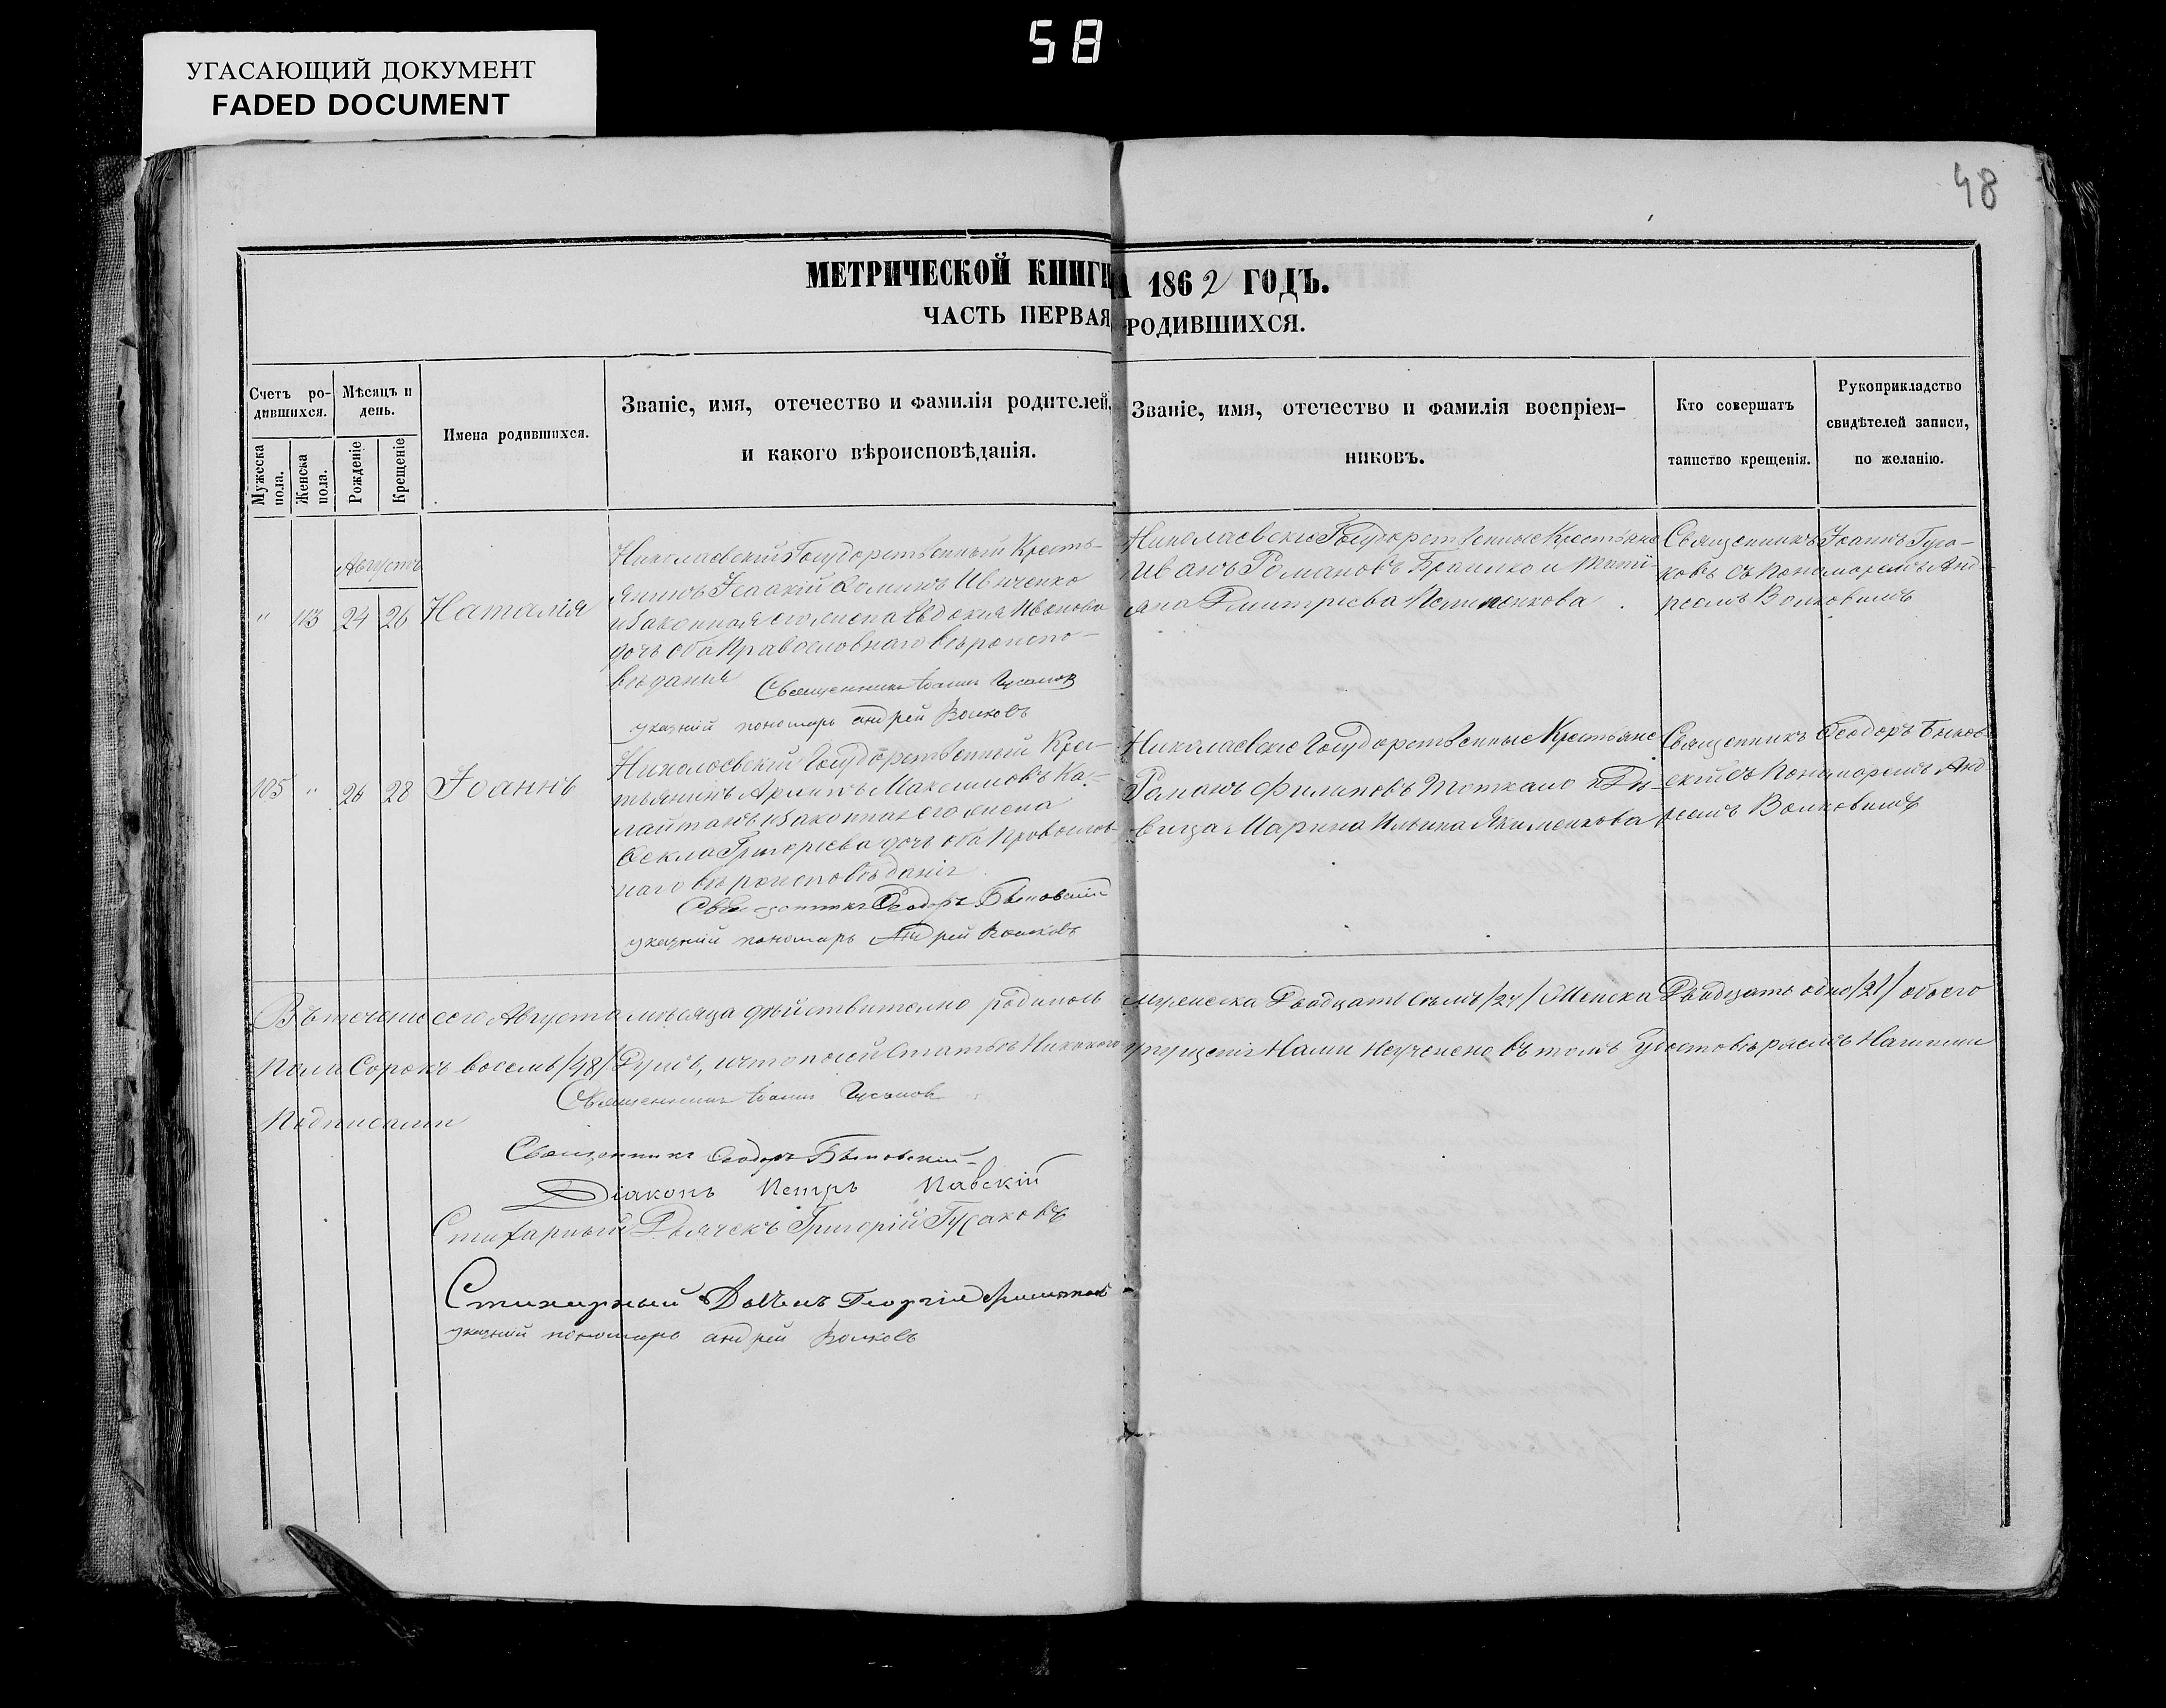 58
УГАСАЮЩИЙ ДОКУМЕНТ
FADED DOCUMENT
48
МЕТРИЧЕСКОЙ КНИГИ
А 1862 ГОДЪ.
ЧАСТЬ ПЕРВАЯ
РОДИВШИХСЯ.
Счетъ ро-
дившихся.
Мѣсяцъ и
день.
Мужеска
пола.
Женска
пола.
Рожденіе
Крещеніе
Имена родившихся.
Званіе, имя, отечество и фамилія родителей,
и какого вѣроисповѣданія.
Званіе, имя, отечество и фамилія воспріем-
никовъ.
Кто совершатъ
таинство крещенія.
Рукоприкладство
свидѣтелей записи,
по желанію.
Августъ
" 113 24 26 Наталія
Николаевскій Государственный Кресть-
янинъ Исаакій Ивченко
и законная его жена Евдокия Иванова
дочь оба Православнаго вѣроиспо-
вѣданія
Священникъ Іоаннъ Гусаковъ
указный пономарь андрей Волковъ
Николаевскіе Государственные Крестьяне
Иванъ Романовъ и Тати-
яна Дмитріева
Священникъ Іоаннъ Гуса-
ковъ съ Пономаремъ Анд-
реемъ Волковымъ
105 " 26 28 Іоаннъ
Николаевскій Государственный Крес-
тьянинъ Максимовъ Ка-
лайтанъ и законная его жена
Ѳекла Григорьева дочь оба Православ-
наго вѣроисповѣданія
Священникъ Ѳеодоръ
указный пономарь Андрей Волковъ
Николаевскіе Государственные Крестьяне
Романъ Филиповъ и Дѣ-
вица Марина Ильина Якименкова
Священникъ Ѳеодоръ
скій съ Пономаремъ Анд-
реемъ Волковымъ
Въ теченіе сего Августа мѣсяца дѣйствительно родилось мужеска Двадцать семь /27/ Женска Двадцать одно /21/ обоего
пола Сорокъ восемь /48/ Душъ, и что по сей Статьѣ Никакого упущенія Нами неучинено въ томъ удостовѣряемъ Нашими
подписами
Священникъ Іоаннъ Гусаковъ
Священникъ Ѳеодоръ
Діаконъ Петръ Павскій
Стихарный Дьячекъ Григорій Гусаковъ
Стихарный Георгій
указный пономарь андрей Волковъ